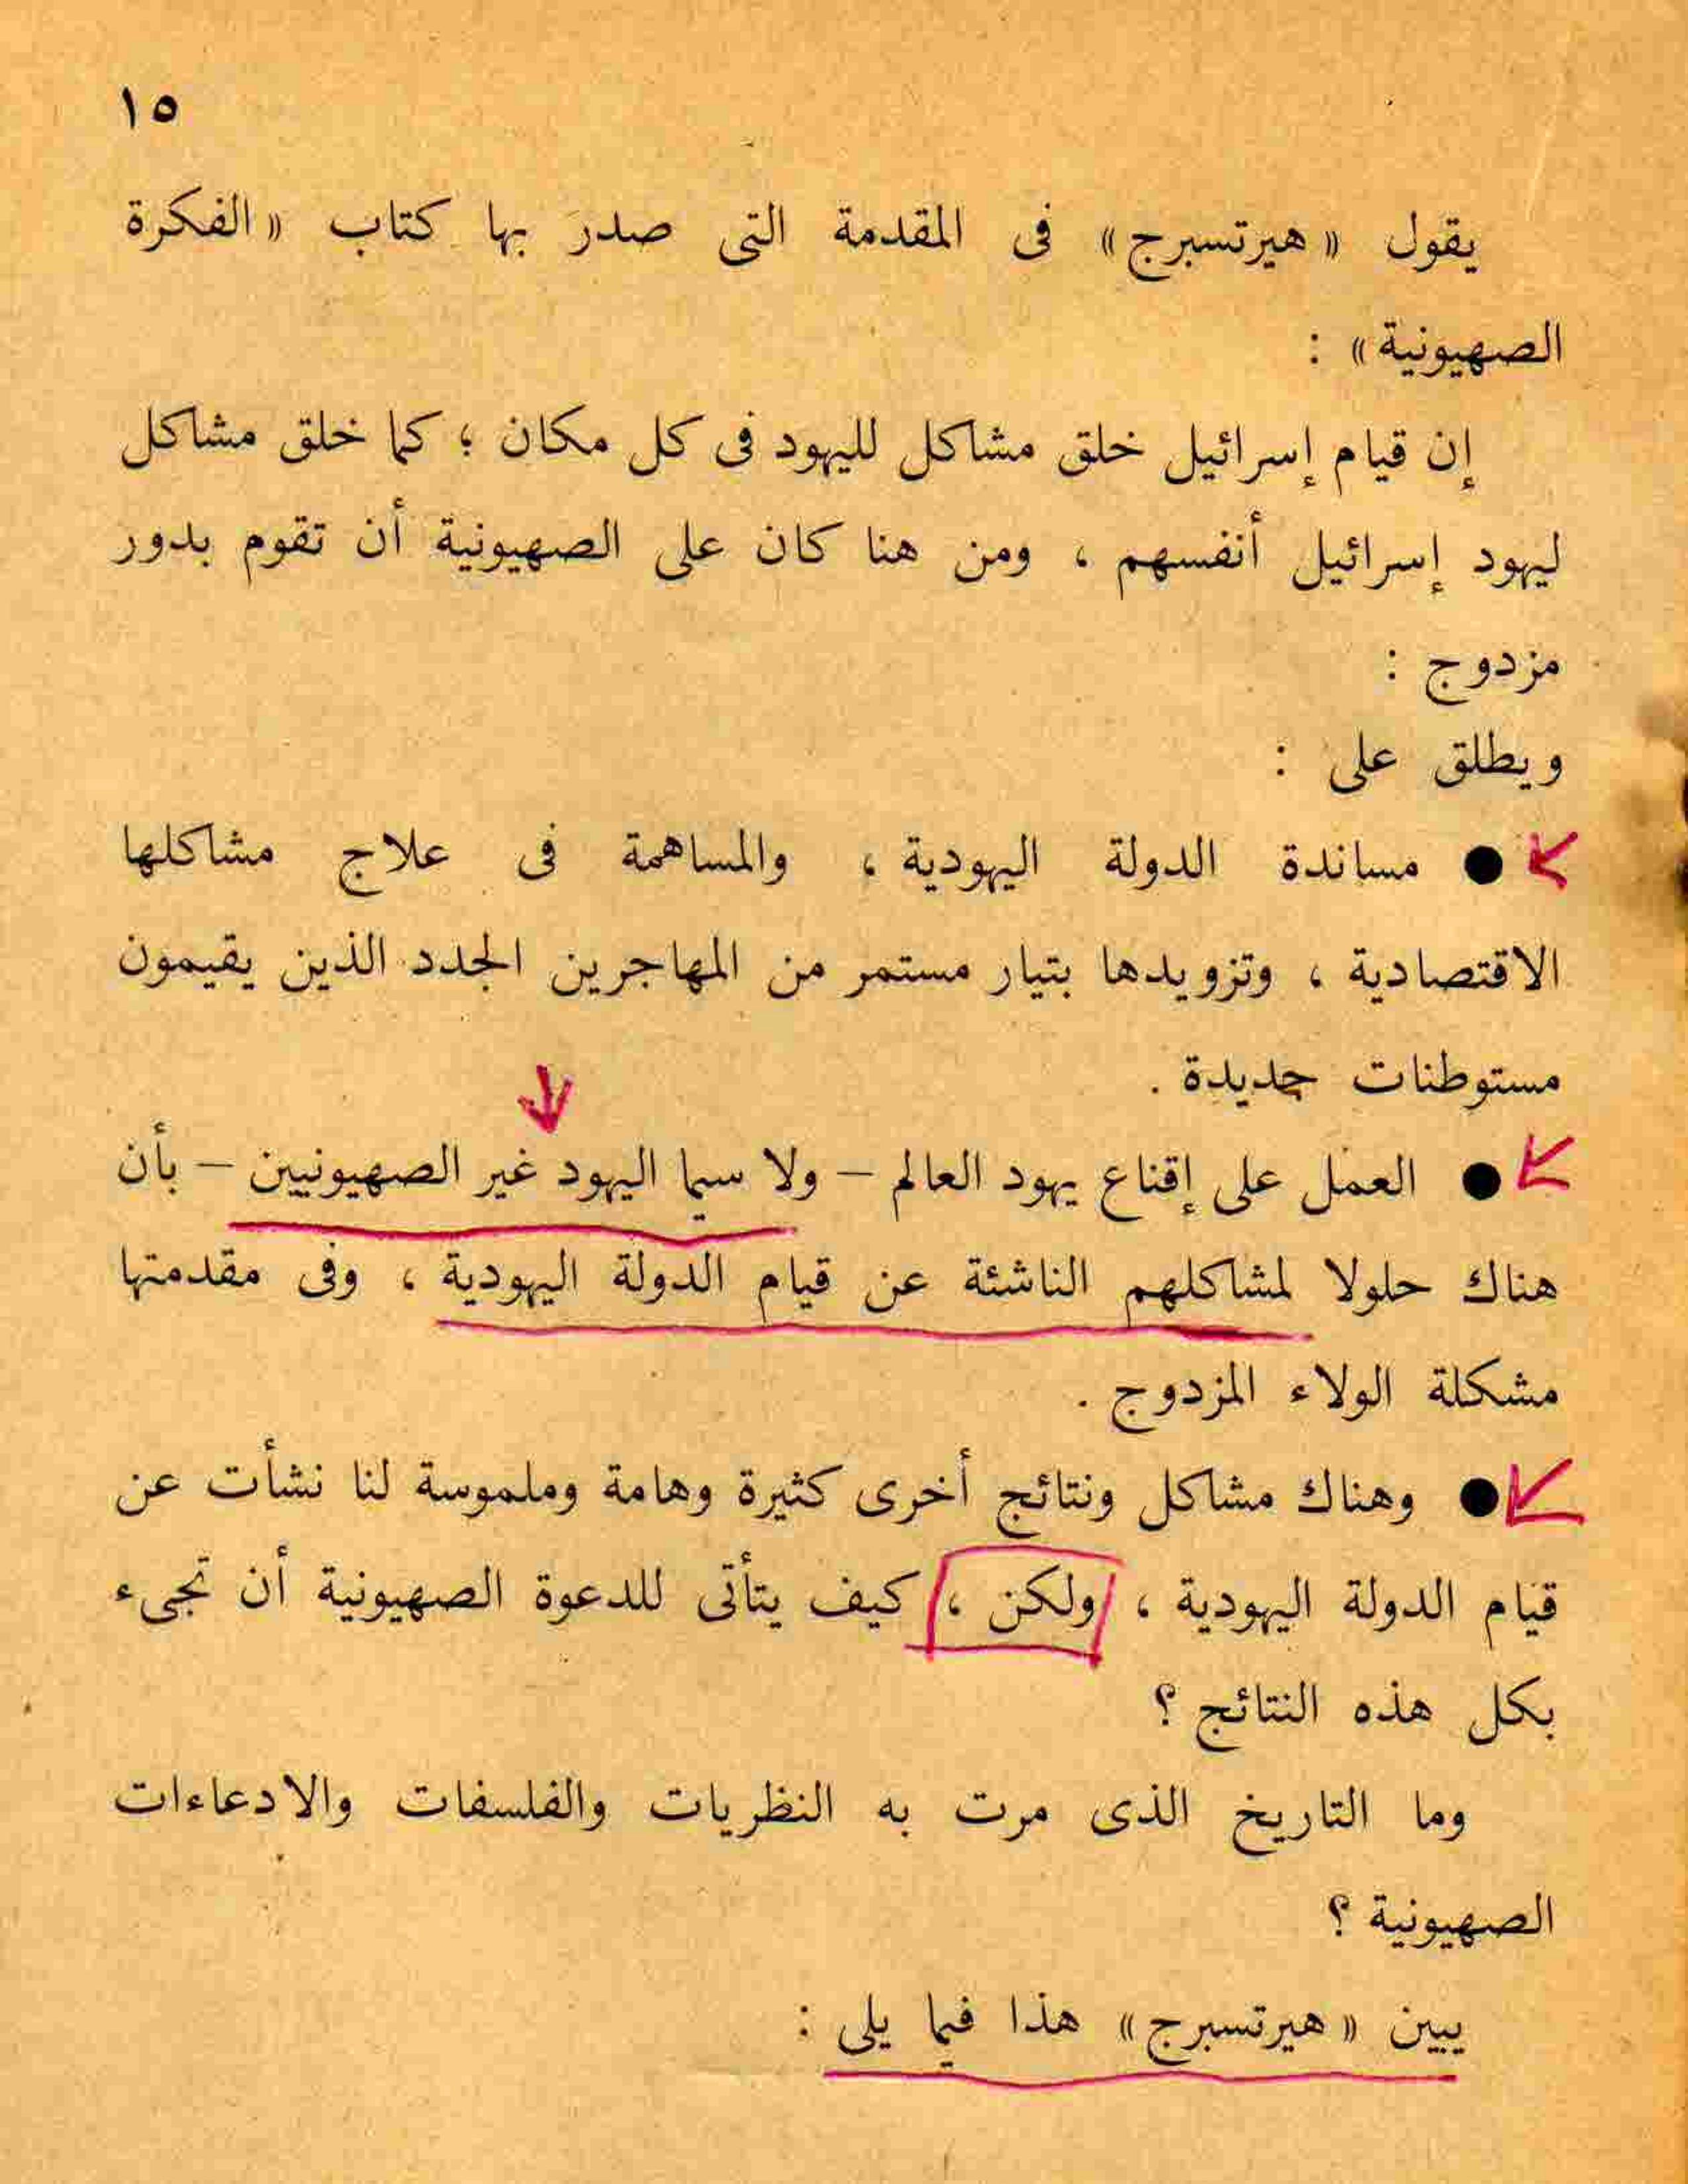 ١٥
يقول « هيرتسبرج » فى المقدمة التى صدرَ بها كتاب « الفكرة
الصهيونية » :
إن قيام إسرائيل خلق مشاكل لليهود فى كل مكان ؛ كما خلق مشاكل
ليهود إسرائيل أنفسهم ، ومن هنا كان على الصهيونية أن تقوم بدور
مزدوج :
ويطلق على :
● مساندة الدولة اليهودية ، والمساهمة فى علاج مشاكلها
الاقتصادية ، وتزويدها بتيار مستمر من المهاجرين الجدد الذين يقيمون
مستوطنات جديدة .
● العمل على إقناع يهود العالم – ولا سيما اليهود غير الصهيونيين – بأن
هناك حلولا لمشاكلهم الناشئة عن قيام الدولة اليهودية ، وفى مقدمتها
مشكلة الولاء المزدوج .
● وهناك مشاكل ونتائج أخرى كثيرة وهامة وملموسة لنا نشأت عن
قيام الدولة اليهودية ، ولكن ، كيف يتأتى للدعوة الصهيونية أن تجىء
بكل هذه النتائج ؟
وما التاريخ الذى مرت به النظريات والفلسفات والادعاءات
الصهيونية ؟
يبين « هيرتسبرج » هذا فيما يلى :